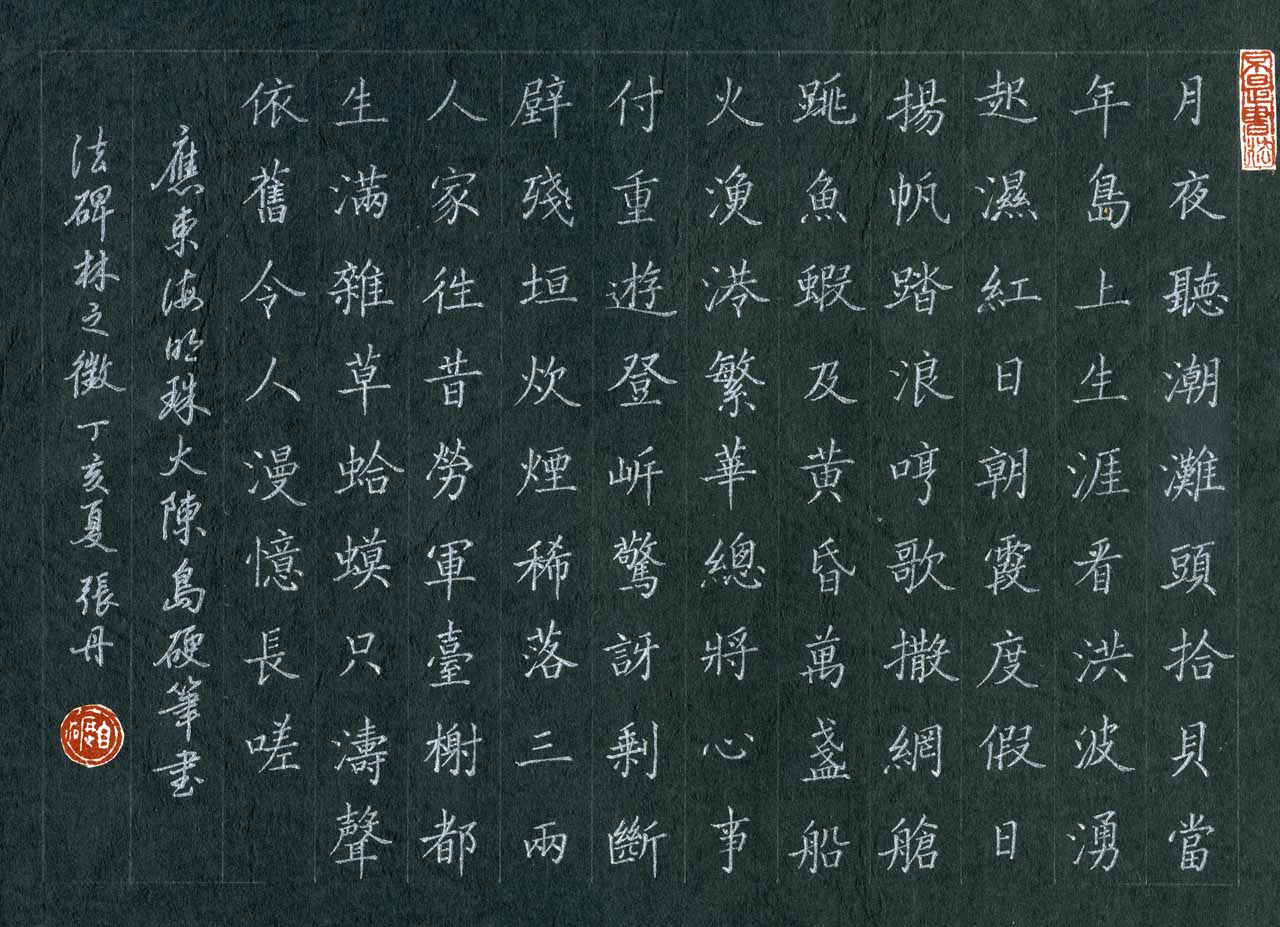 月夜聽潮灘頭拾貝當
年島上生涯看洪波湧
起濕紅日朝霞度假日
揚帆踏浪哼歌撒網艙
跳魚蝦及黃昏萬盞船
火漁港繁華總將心事
付重遊登岍驚訝剩斷
壁殘垣炊煙稀落三兩
人家往昔勞軍臺榭都
生滿雜草蛤蟆只濤聲
依舊令人漫憶長嗟
應東海明珠大陳島硬筆書
法碑林之徵丁亥夏張丹